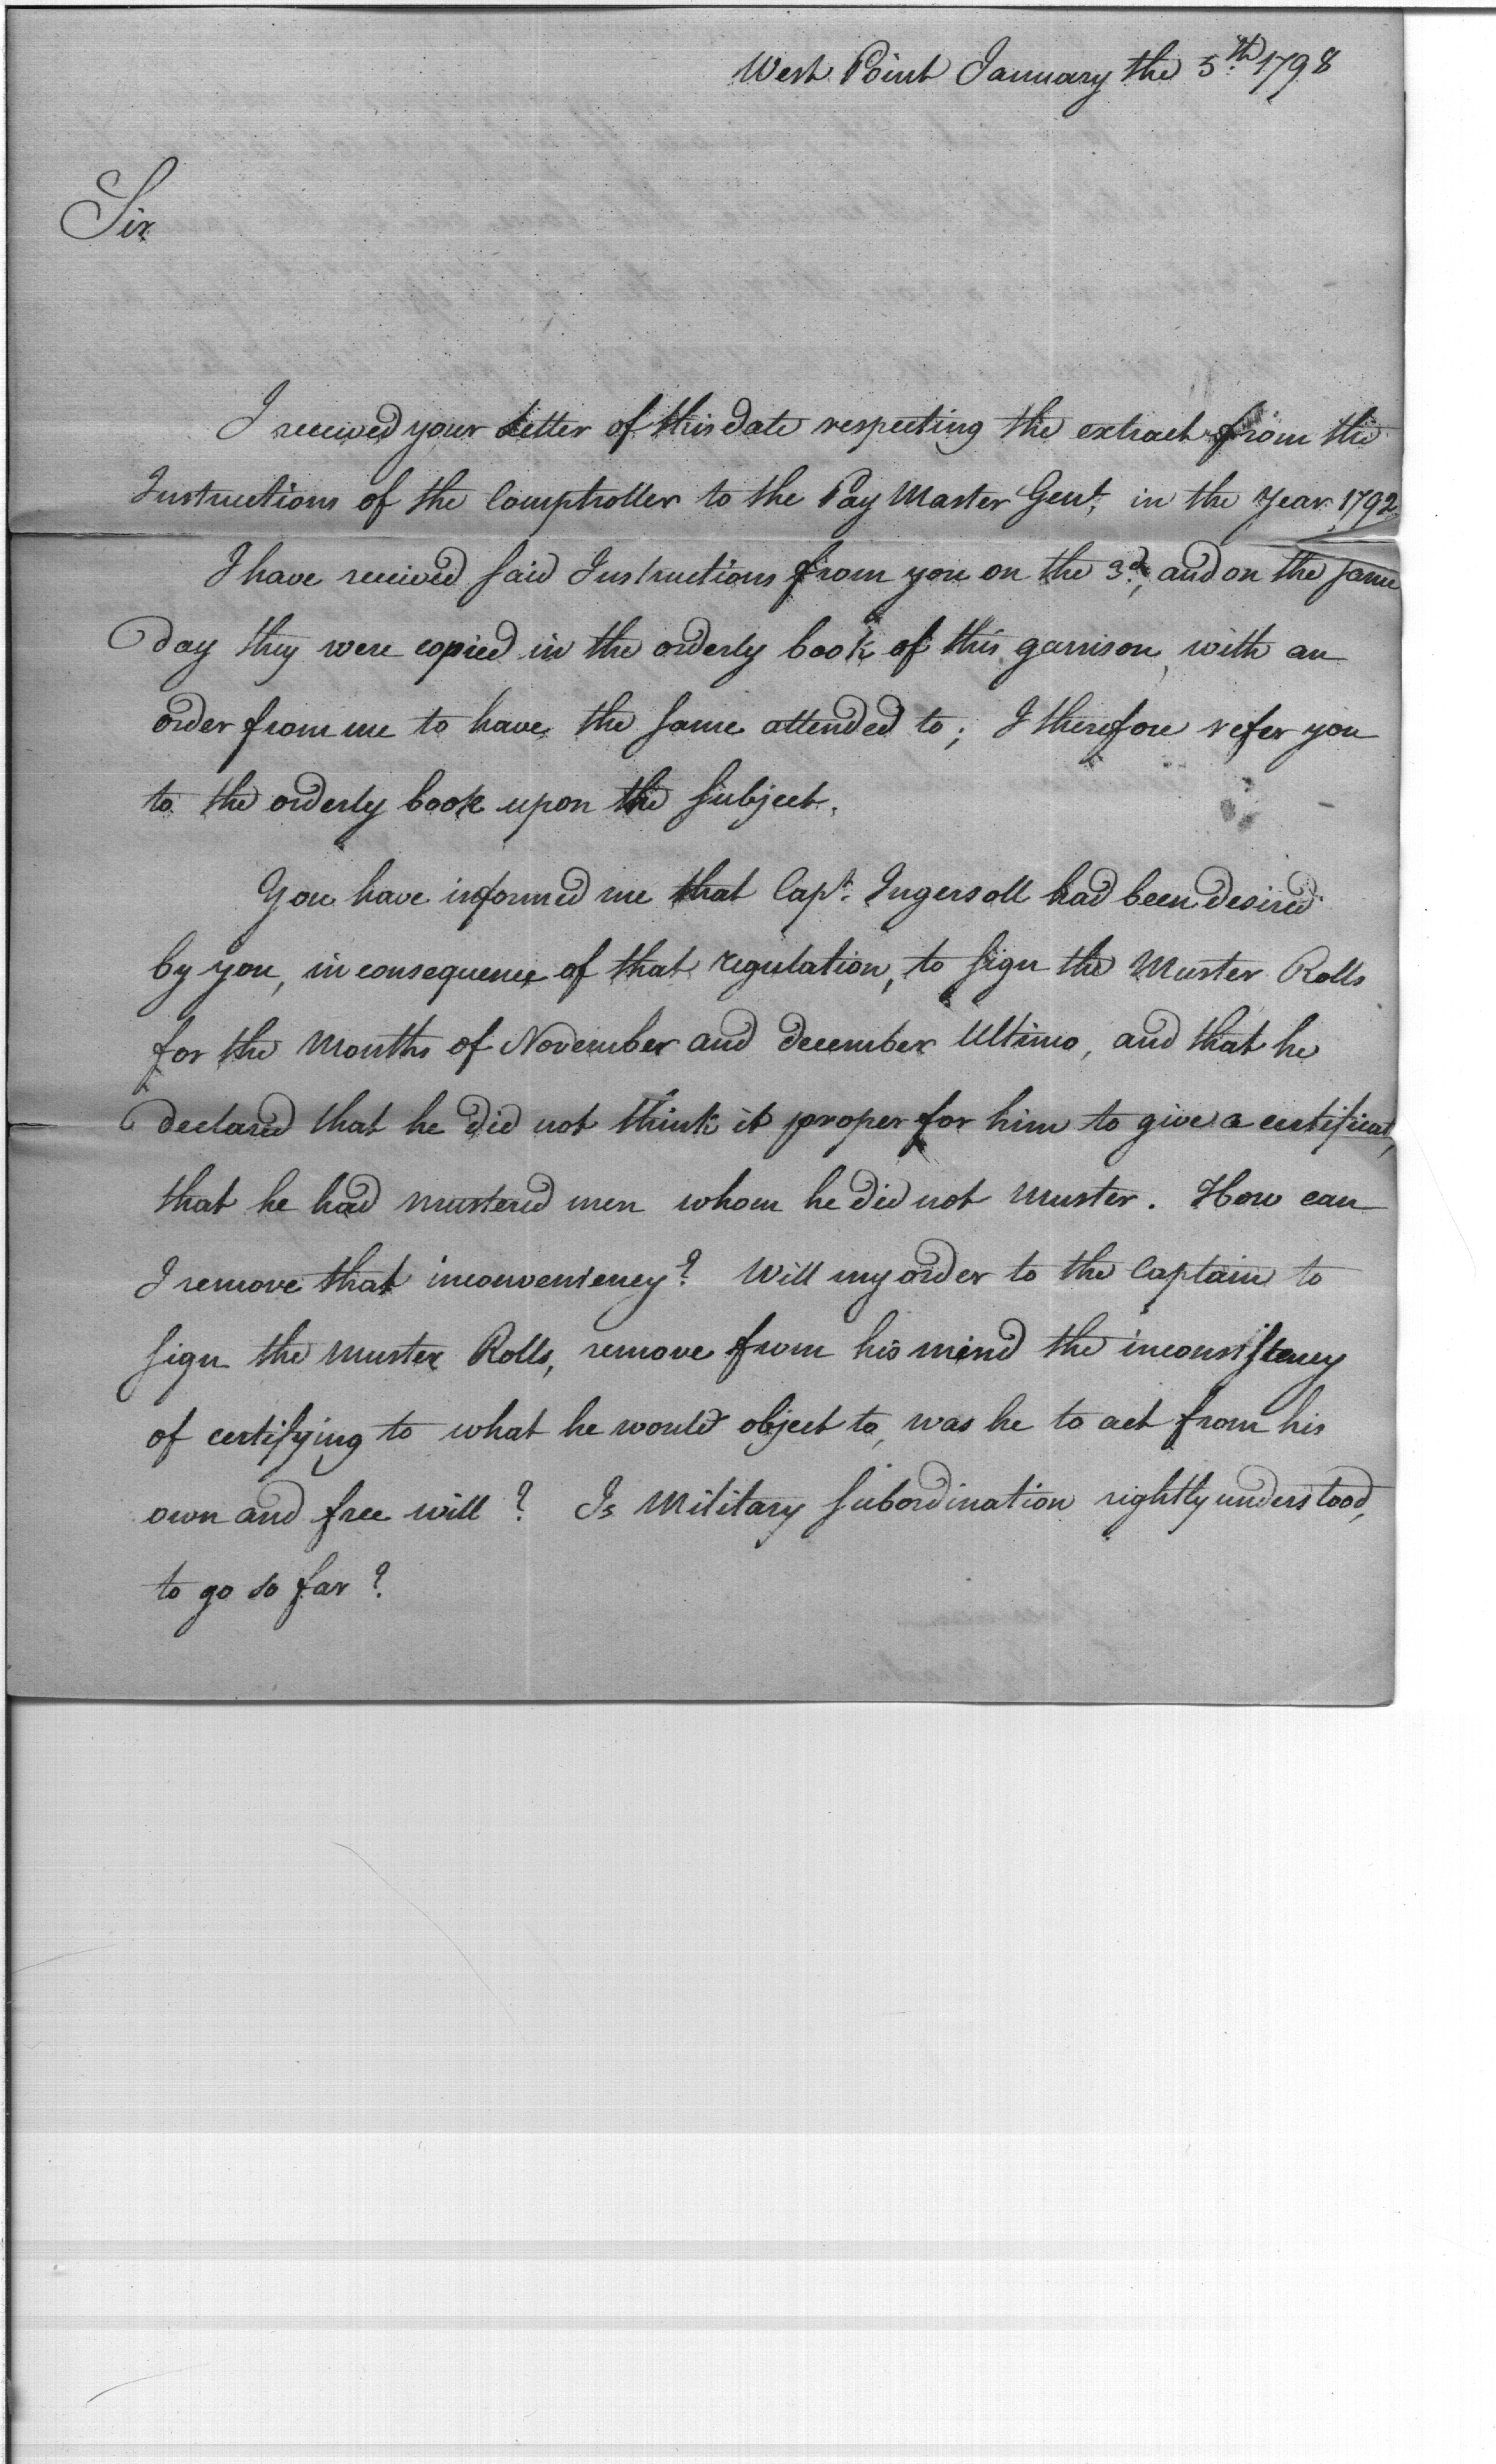 West Point January the 5th 1798
Sir
I received your Letter of this date respecting the extract from the
Instructions of the Comptroller to the Pay Master Genl. in the Year 1792.
I have received said Instructions from you on the 3d, and on the same
day they were copied in the orderly book of this garrison, with an
order from me to have the same attended to; I therefore refer you
to the orderly book upon the subject.
You have informed me that Capt. Ingersoll had been desired
by you, in consequence of that regulation, to sign the Muster Rolls
for the Months of November and december Ultimo, and that he
declared that he did not think it proper for him to give a certificat,
that he had mustered men whom he did not muster. How can
I remove that inconveniency? Will my order to the Captain to
sign the Muster Rolls, remove from his mind the inconsistency
of certifying to what he would object to, was he to act from his
own and free will? Is Military subordination rightly understood,
to go so far?